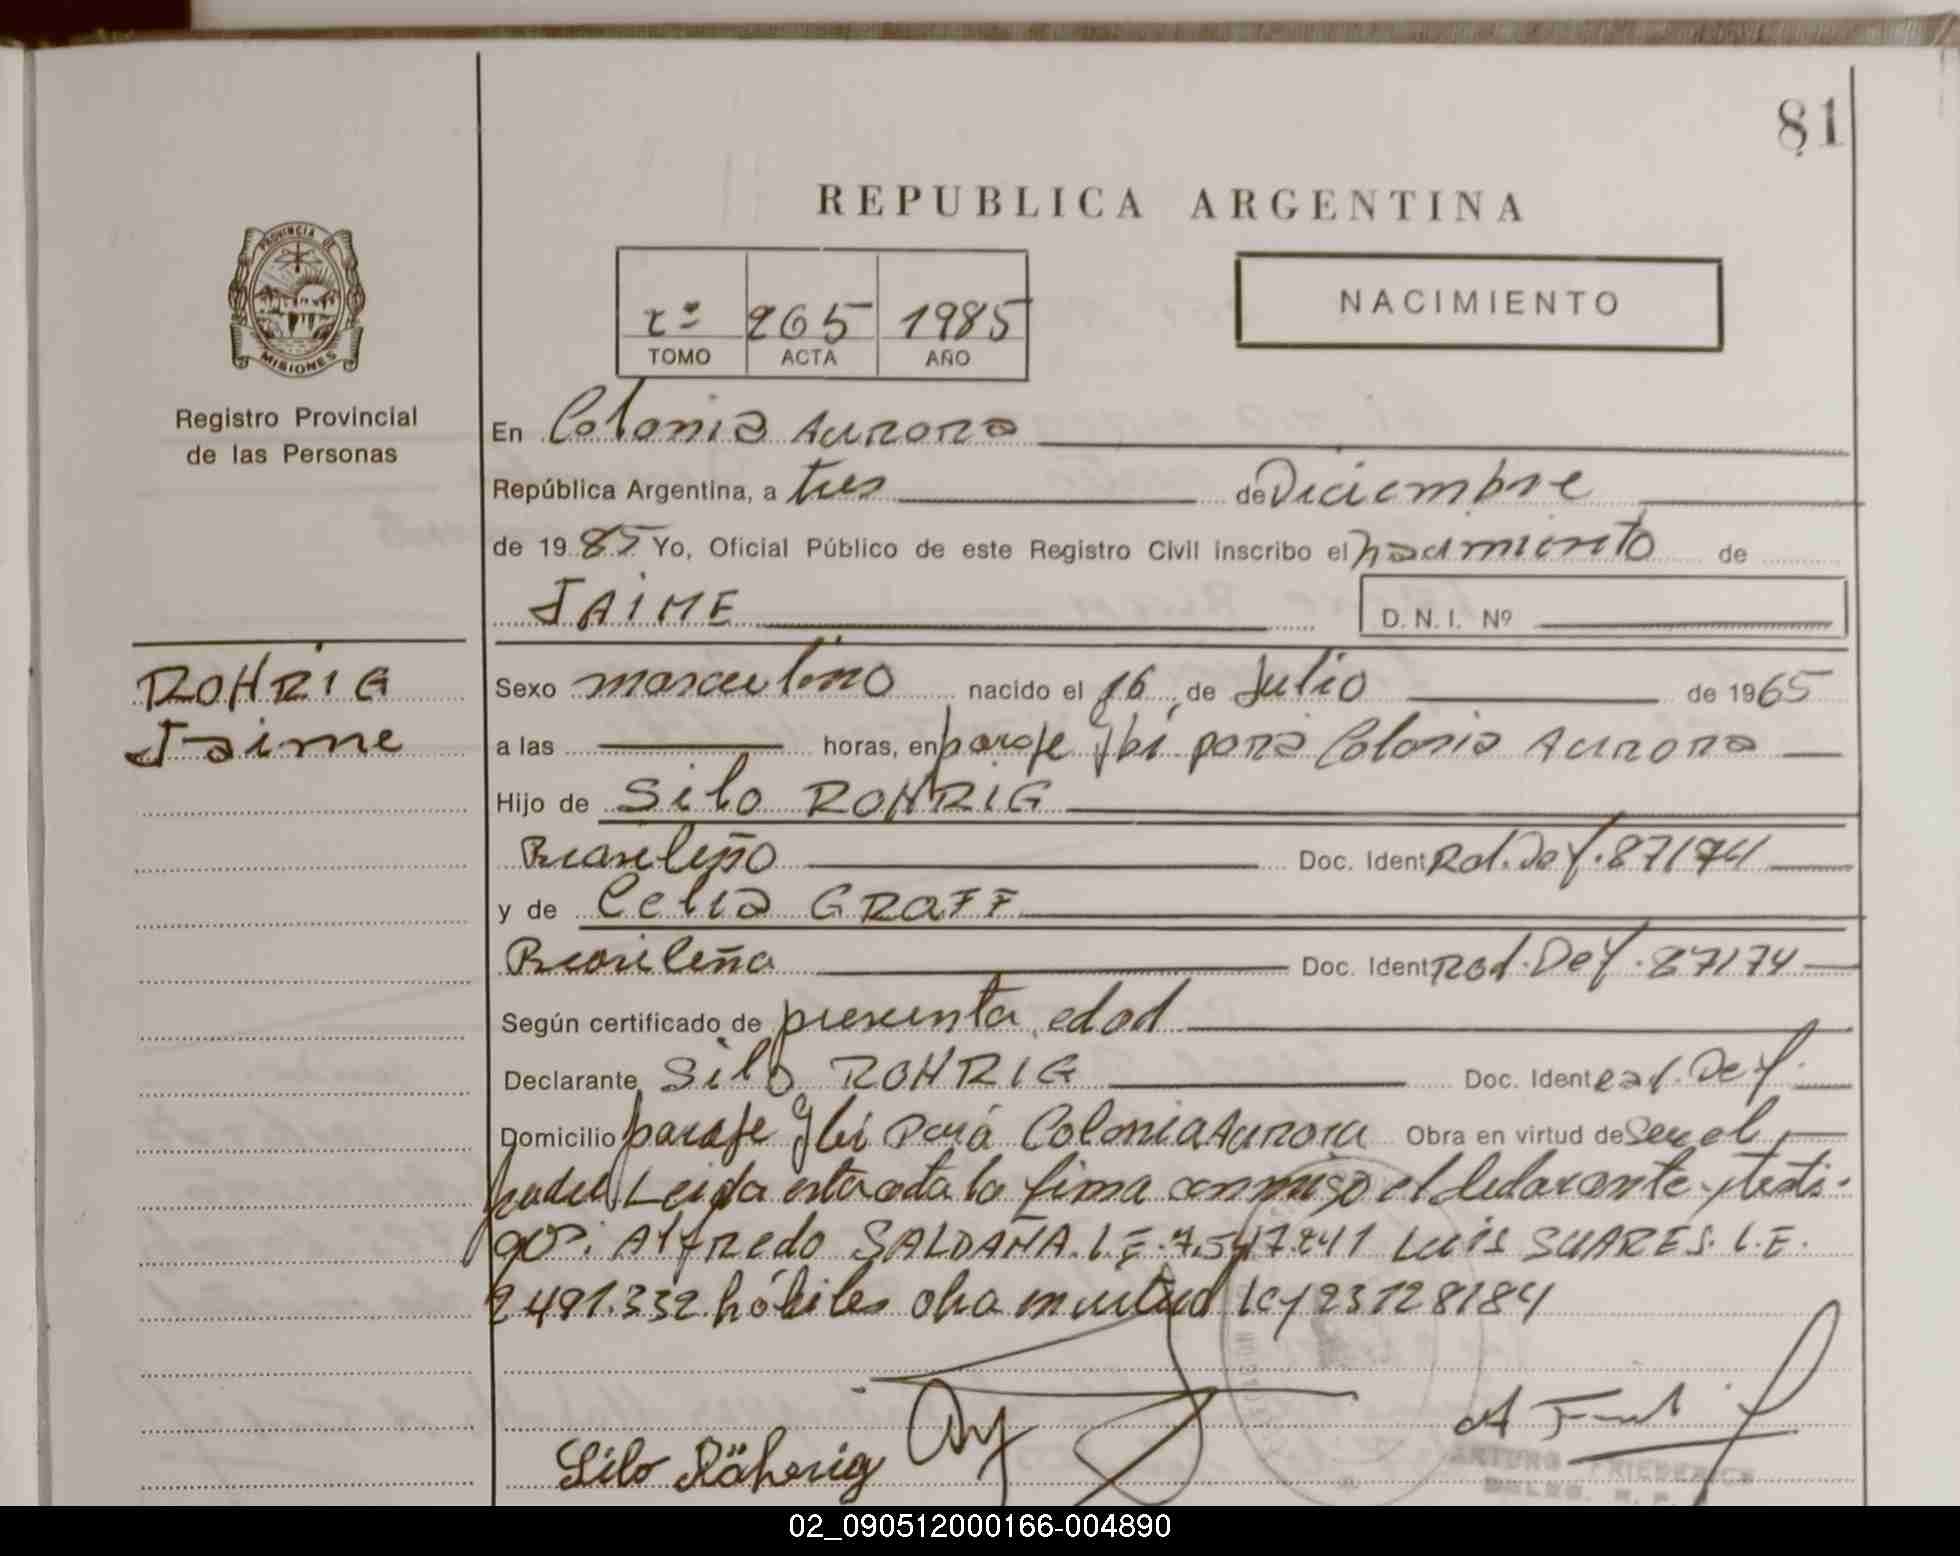 81
REPUBLICA ARGENTINA
PROVINCIA DE
MISIONES
Registro Provincial
de las Personas
265 1985
TOMO ACTA AÑO
NACIMIENTO
En Colonia Aurora
República Argentina, a tres de Diciembre
de 1985 Yo, Oficial Público de este Registro Civil inscribo el nacimiento de
JAIME D. N. I. Nº
ROHRIG
Jaime
Sexo masculino nacido el 16 de Julio de 1965
a las horas, en paraje Ybi pará Colonia Aurora
Hijo de Silo ROHRIG
Brasileño Doc. Ident Rad. Def. 87174
y de Celia GRAFF
Brasileña Doc. Ident Rad. Def. 87174
Según certificado de presunta edad
Declarante Silo ROHRIG Doc. Ident Rad. Def.
Domicilio paraje Ybi Pará Colonia Aurora Obra en virtud de ser el
padre Leida esta acta la firma conmigo el declarante y testi-
gos: Alfredo SALDAÑA L.E. 7.547.241 Luis SUARES. L.E.
2491.332 hábiles obra en virtud ley 23128/84
Silo Röhrig
ARTURO FRIEDERICH
02_090512000166-004890